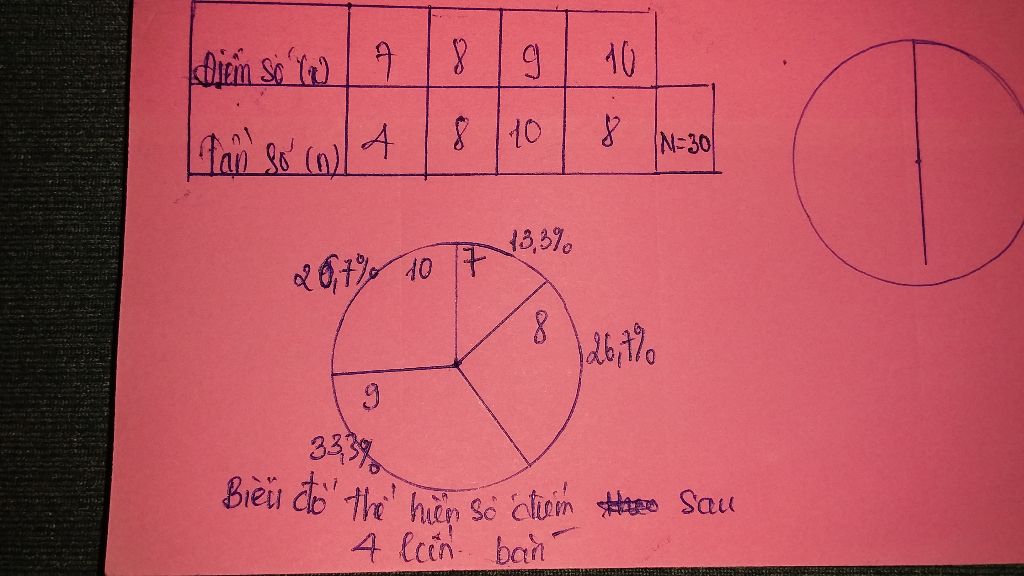 Điểm số (x) 7 8 9 10
Tần số (n) 4 8 10 8 N=30
13,3%
26,7% 10 7
8
26,7%
9
33,3%
Biểu đồ thể hiện số điểm sau
4 lần bắn